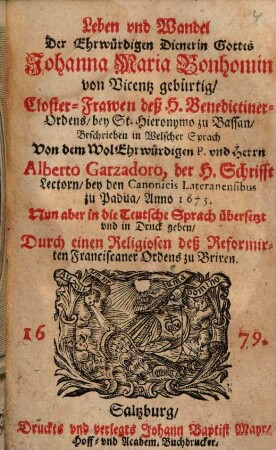 Leben vnd Wandel
Der Ehrwürdigen Dienerin Gottes
Johanna Maria Bonhomin
von Vicentz gebürtig/
Closter-Frawen deß H. Benedictiner-
Ordens/ bey St. Hieronymo zu Bassan/
Beschrieben in Welscher Sprach
Von dem WolEhrwürdigen P. vnd Herrn
Alberto Garzadoro, der H. Schrifft
Lectorn/ bey den Canonicis Lateranensibus
zu Padua/ Anno 1675.
Nun aber in die Teutsche Sprach übersetzt
vnd in Druck geben/
Durch einen Religiosen deß Reformir-
ten Franciscaner Ordens zu Brixen.
16 79.
Saltzburg/
Druckts vnd verlegts Johann Baptist Mayr/
Hoff- vnd Academ. Buchdrucker.